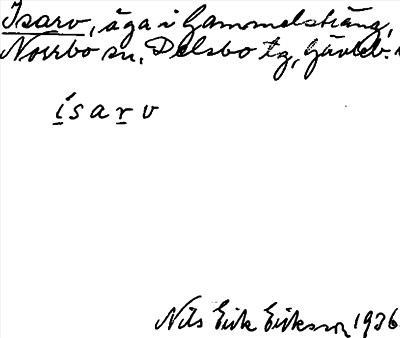 Isarv, äga i Gammelsträng,
Norrbo sn, Delsbo tg, Gävleb.
ísarv
Nils Erik Eriksson 1936